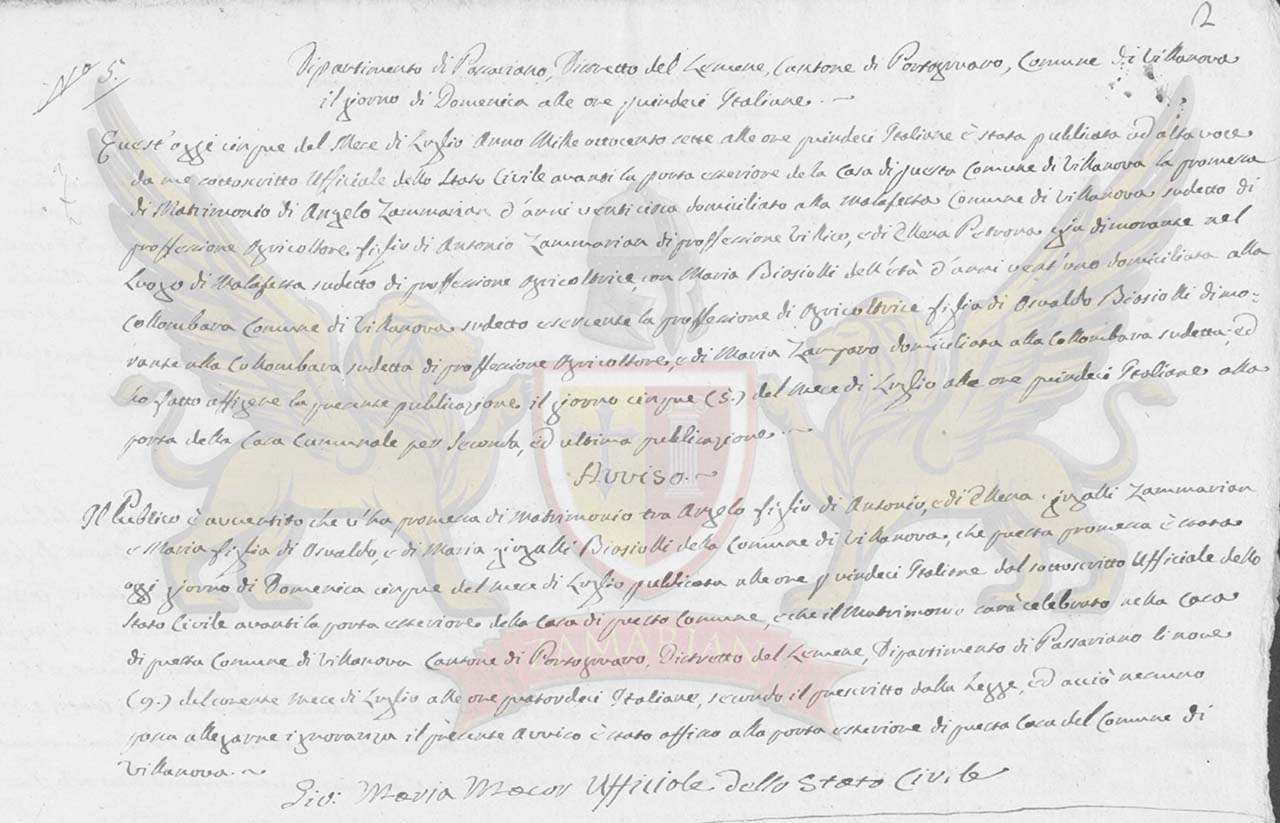 2
Nº 5.
Dipartimento di Passariano, Distretto del Lemene, Cantone di Portogruaro, Comune di Villanova
il giorno di Domenica alle ore quindeci Italiane.
Quest' oggi cinque del Mese di Luglio Anno Mille ottocento sette alle ore quindeci Italiane è stata publicata ad alta voce
da me sottoscritto Ufficiale dello Stato Civile avanti la porta esteriore de la Casa di questa Comune di Villanova la promessa
di Matrimonio di Angelo Zammarian d'anni domiciliato alla Malafesta Comune di Villanova sudetto di
proffessione Agricoltore figlio di Antonio Zammarian di proffessione Villico, e di Ellena dimorante nel
Luogo di Malafesta sudetto di proffessione Agricoltrice, con Maria Biasiolli dell'età d'anni vent'uno domiciliata alla
Collombara Comune di Villanova sudetto esercente la proffessione di Agricoltrice figlia di Osvaldo Biasiolli dimo-
rante alla Collombara sudetta di proffessione Agricoltore, e di Maria Zamparo domiciliata alla Collombara sudetta; ed
ho fatto affigere la presente publicazione il giorno cinque (5.) del Mese di Luglio alle ore quindeci Italiane alla
porta della Casa Comunale per seconda, ed ultima publicazione.
Avviso.
Il Publico è avvertito che v'ha promessa di Matrimonio tra Angelo figlio di Antonio, e di Ellena jugalli Zammarian
e Maria figlia di Osvaldo, e di Maria jugalli Biasiolli della Comune di Villanova, che questa promessa è stata
oggi giorno di Domenica cinque del mese di Luglio publicata alle ore quindeci Italiane dal sottoscritto Ufficiale dello
Stato Civile avanti la porta esteriore della Casa di questo Comune, e che il Matrimonio sarà celebrato nella Casa
di questa Comune di Villanova Cantone di Portogruaro, Distretto del Lemene, Dipartimento di Passariano li nove
(9.) del corrente Mese di Luglio alle ore quatordeci Italiane, secondo il prescritto dalla Legge, ed acciò nessuno
possa allegarne ignoranza il presente Avviso è stato affisso alla porta esteriore di questa Casa del Comune di
Villanova.
Gio: Maria Macor Ufficiale dello Stato Civile
ZAMARIAN